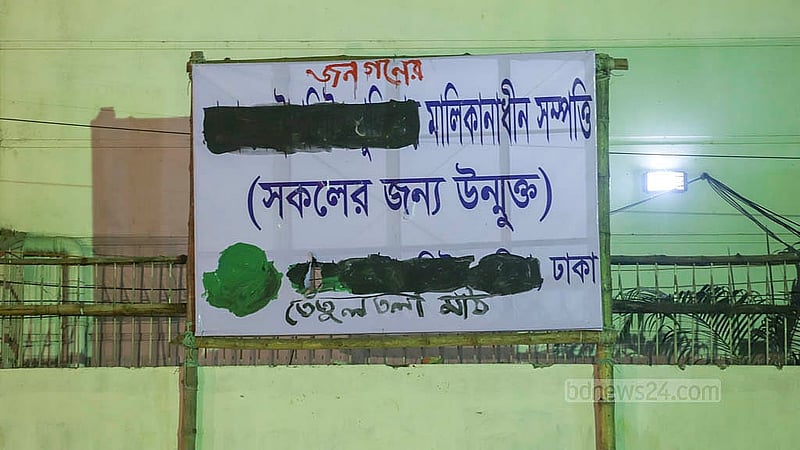 জনগনের
মালিকানাধীন সম্পত্তি
(সকলের জন্য উন্মুক্ত)
ঢাকা
তেঁতুলতলা মাঠ
bdnews24.com